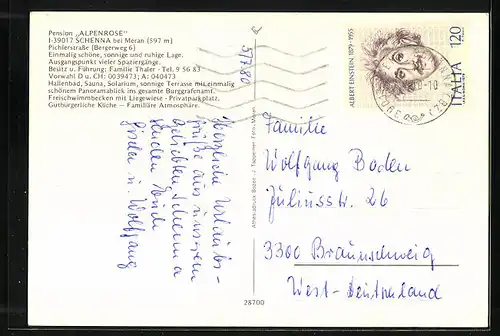 Pension „ALPENROSE"
I-39017 SCHENNA bei Meran (597 m)
Pichlerstraße (Bergerweg 6)
Einmalig schöne, sonnige und ruhige Lage.
Ausgangspunkt vieler Spaziergänge.
Besitz u. Führung: Familie Thaler - Tel. 9 56 83
Vorwahl D u. CH: 0039473; A: 040473
Hallenbad, Sauna, Solarium, sonnige Terrasse mit einmalig
schönem Panoramablick ins gesamte Burggrafenamt.
Freischwimmbecken mit Liegewiese - Privatparkplatz.
Gutbürgerliche Küche — Familiäre Atmosphäre.
Herzliche Urlaubs-
grüße aus unserem
geliebten Schenna
senden Euch
u. Wolfgang
5/7.80
28700
ALBERT EINSTEIN 1879-1955
ITALIA 120
Familie
Wolfgang Boden
Juliusstr. 26
3300 Braunschweig
West-Deutschland